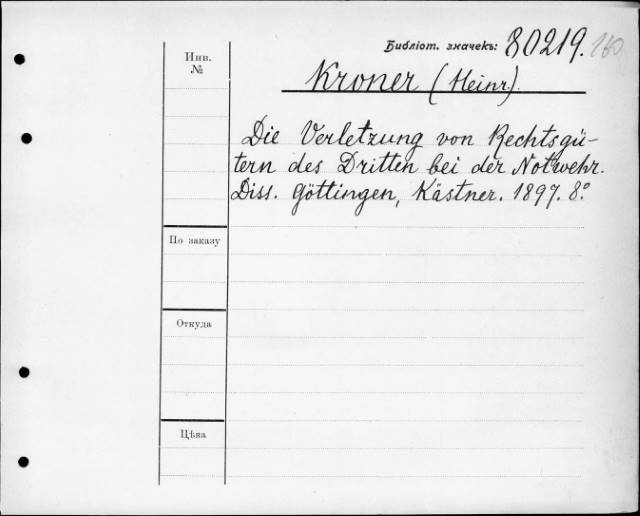 Библіот. значекъ: 80219. 160
Инв.
№
Kroner (Heinr).
Die Verletzung von Rechtsgü-
tern des Dritten bei der Notwehr.
Diss. Göttingen, Kästner. 1897. 8.°
По заказу
Откуда
Цѣна